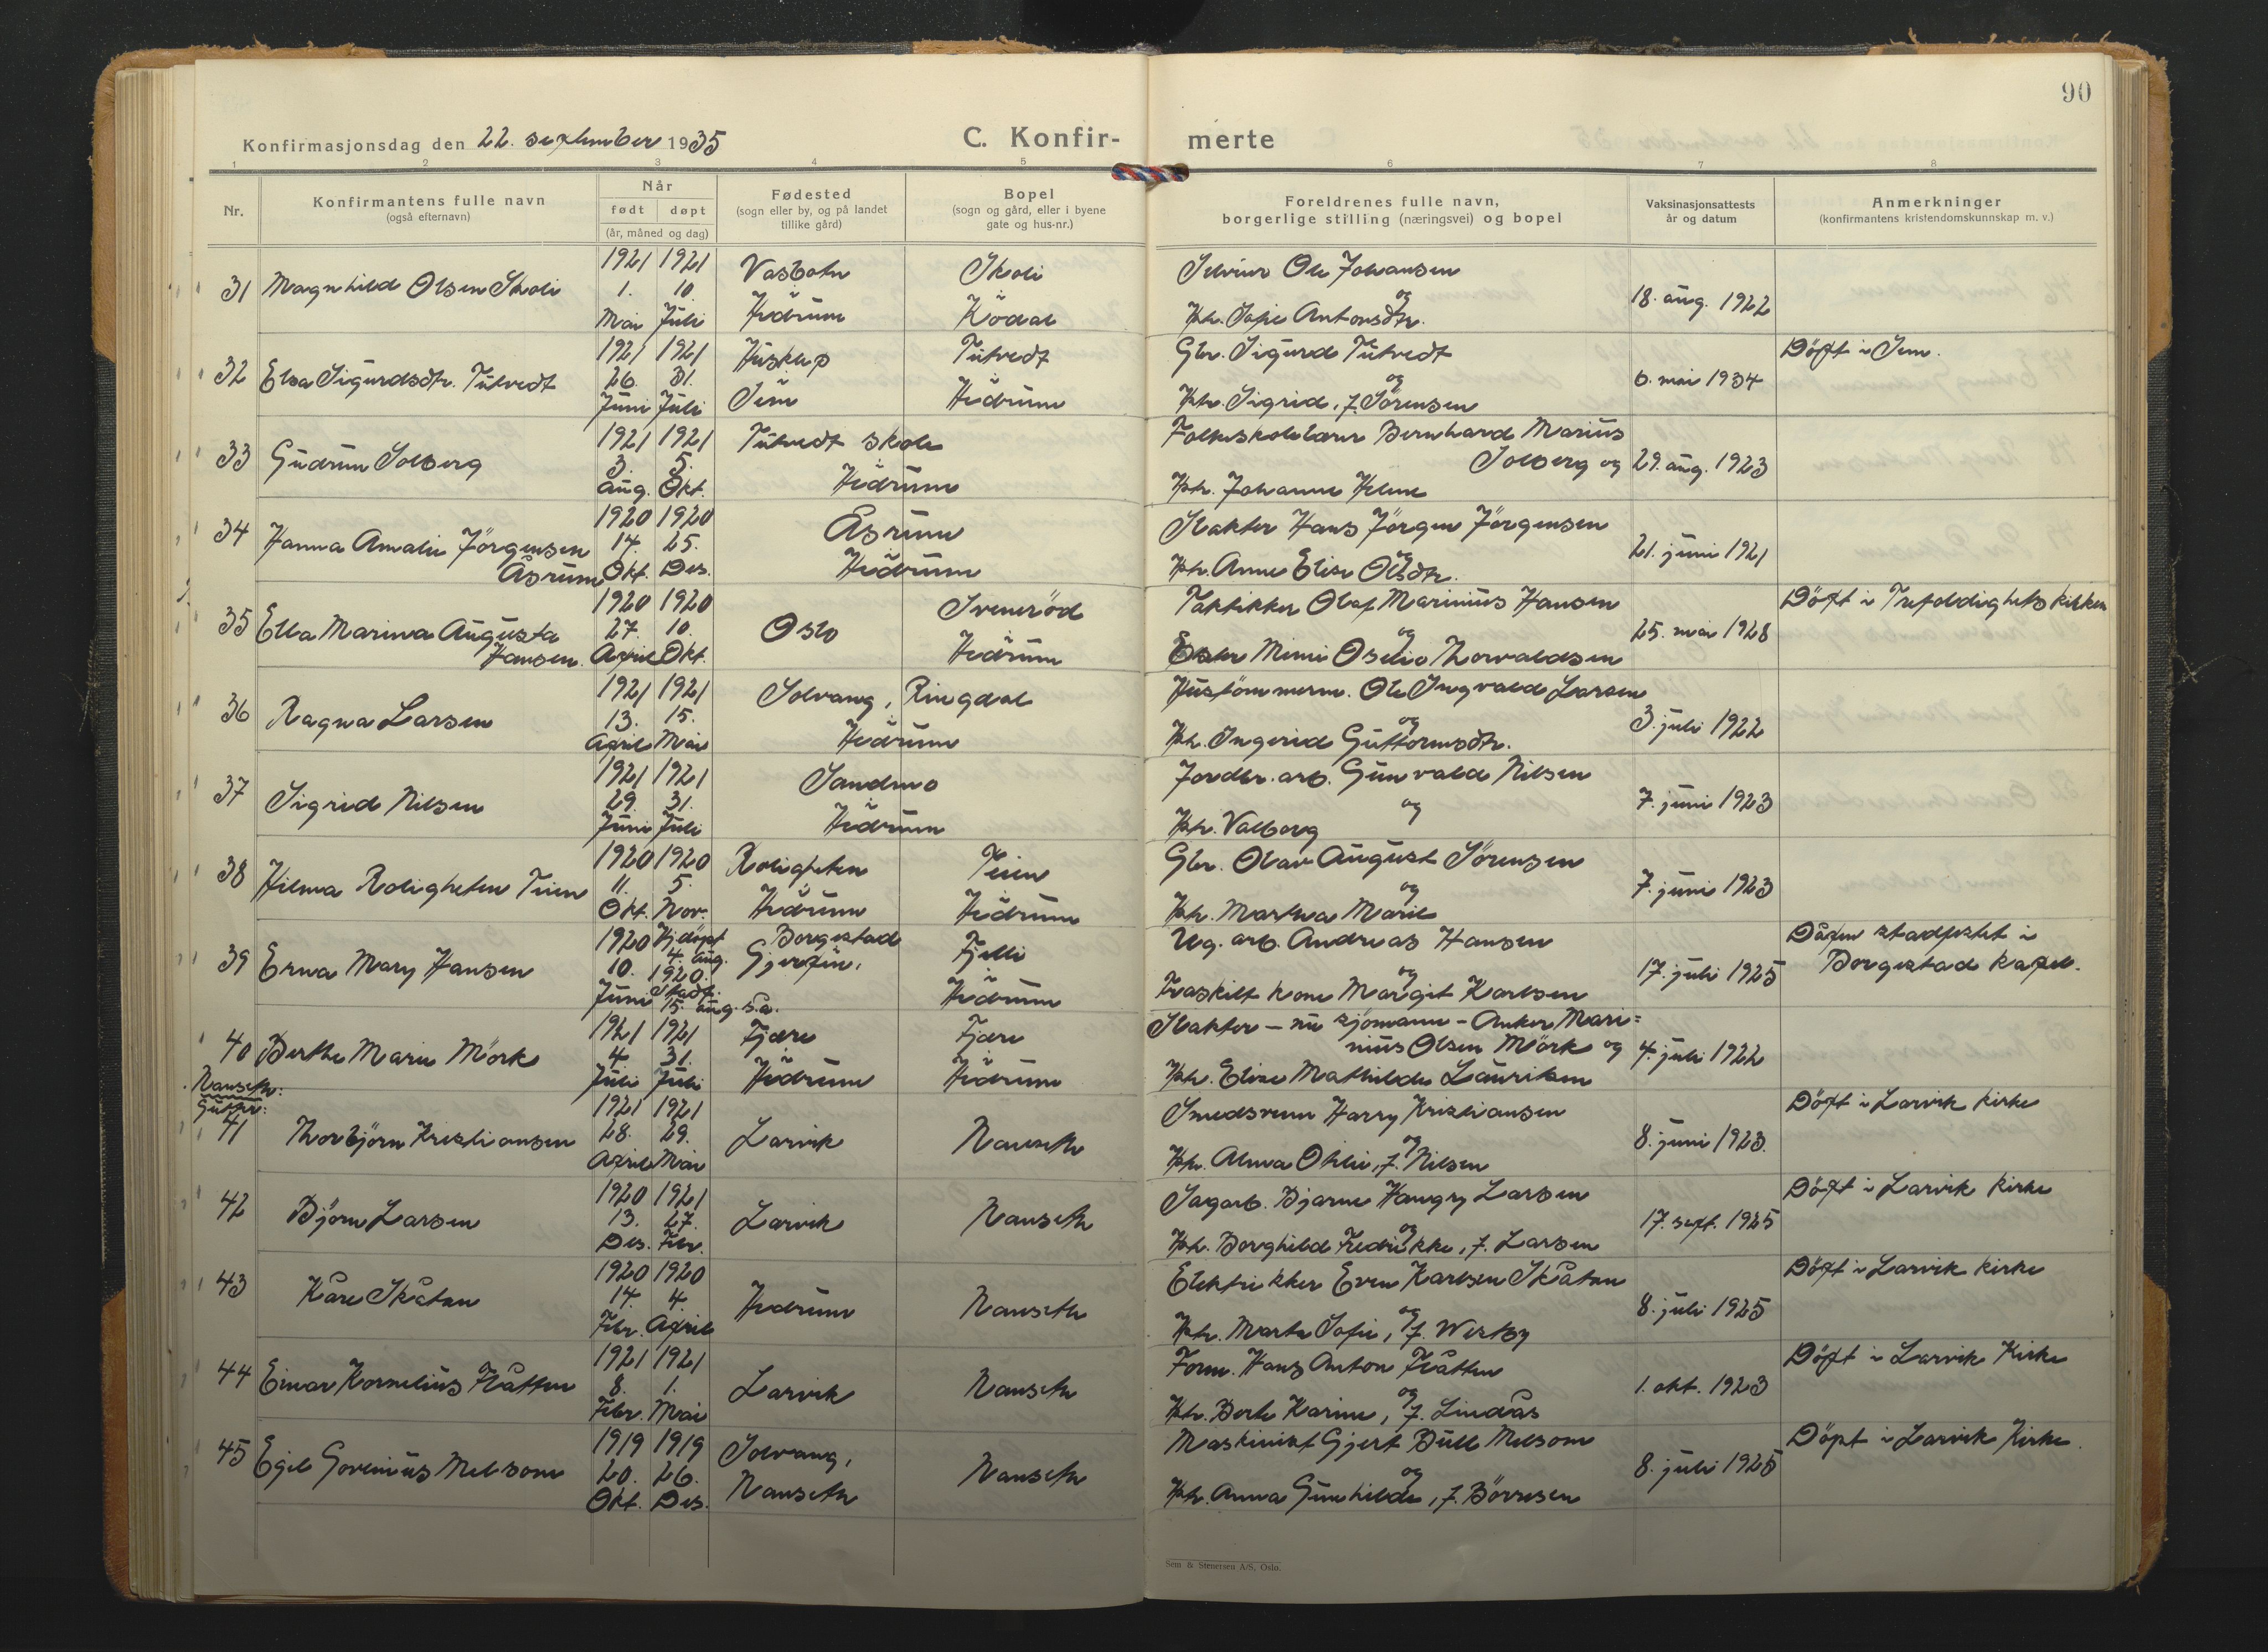 90
Konfirmasjonsdag den 22. september 1935
C. Konfir- merte
1 2 3 4 5 6 7 8
Nr.
Konfirmantens fulle navn
(også efternavn)
Når
født døpt
(år, måned og dag)
Fødested
(sogn eller by, og på landet
tillike gård)
Bopel
(sogn og gård, eller i byene
gate og hus-nr.)
Foreldrenes fulle navn,
borgerlige stilling (næringsvei) og bopel
Vaksinasjonsattests
år og datum
Anmerkninger
(konfirmantens kristendomskunnskap m. v.)
1921 1921 Vasbotn Skoli Ole Johansen
31 Magnhild Olsen Skoli 1. 10. og 18. aug. 1922
Mai Juli Hedrum Kodal Htr. Sofie Antonsdtr.
1921 1921 Huskep Tutvedt Gbr. Sigurd Tutvedt Döpt i Sem.
32 Elsa Sigurdsdtr. Tutvedt 26. 31. og 6. mai 1934
Juni Juli Sem Hedrum Htr. Sigrid, f. Sörensen
1921 1921 Tutvedt skole Folkeskolelærer Bernhard Marius
33 Gudrun Solberg 3. 5. Solberg og 29. aug. 1923
Aug. Okt. Hedrum Htr. Johanne Helene
1920 1920 Åsrum Slakter Hans Jörgen Jörgensen
34 Hanna Amalie Jörgensen 14. 25. og 21. juni 1921
Åsrum Okt. Des. Hedrum Htr. Anne Elise Olsdtr.
1920 1920 Svenseröd Olaf Marinius Hansen Döpt i Trefoldighetskirken
35 Ella Marina Augusta 27. 10. Oslo og 25. mai 1928
Hansen. April Okt. Hedrum Ester Mimi Oselio Thorvaldsen
1921 1921 Solvang, Ringdal Hustömmerm. Ole Ingvald Larsen
36 Ragna Larsen 13. 15. og 3. juli 1922
April Mai Hedrum Htr. Ingerid Guttormsdtr.
1921 1921 Sandmo Jordbr. arb. Gunvald Nilsen
37 Sigrid Nilsen 29. 31. og 7. juni 1923
Juni Juli Hedrum Htr. Valborg
1920 1920 Roligheten Teien Gbr. Olav August Sörensen
38 Hilma Roligheten Teien 11. 5. og 7. juni 1923
Okt. Nov. Hedrum Hedrum Htr. Martha Marie
1920 Hj.döpt Borgestad Fjelli Ug. arb. Andreas Hansen Dåpen stadfestet i
39 Erna Mary Hansen 10. 4. aug. 1920. Gjerpen. og 17. juli 1925 Borgestad kapel.
Juni Stadf. 15. aug. s.a. Hedrum Fraskilt kone Margit Karlsen
1921 1921 Fjære Fjære Slakter - nu sjömann - Anker Mari=
40 Berthe Marie Mörk 4. 31. nius Olsen Mörk og 4. juli 1922
Juli Juli Hedrum Hedrum Htr. Elise Mathilde Lauritsen
Nanseth:
Gutter:
1921 1921 Smedsvenn Harry Kristiansen Döpt i Larvik kirke
41 Thorbjörn Kristiansen 28. 29. Larvik Nanseth og 8. juni 1923.
April Mai Htr. Alma Otilie, f. Nilsen
1920 1921 Sagarb. Bjarne Haugry Larsen Döpt i Larvik kirke
42 Björn Larsen 13. 27. Larvik Nanseth og 17. sept. 1925
Des. Febr. Htr. Borghild Fredrikke, f. Larsen
1920 1920 Elektrikker Even Karlsen Skåtan Döpt i Larvik kirke
43 Kåre Skåtan 14. 4. Hedrum Nanseth og 8. juli 1925
Febr. April Htr. Marta Sofie, f. Westby
1921 1921 Form. Hans Anton Kåtten Döpt i Larvik Kirke
44 Einar Kornelius Kåtten 8. 1. Larvik Nanseth og 1. okt. 1923
Febr. Mai Htr. Berte Karine, f. Lindås
1919 1919 Solvang, Maskinist Gjert Bull Melsom Döpt i Larvik Kirke.
45 Egil Severinus Melsom 20. 26. Nanseth og 8. juli 1925
Okt. Des. Nanseth Htr. Anna Gunhilde, f. Börresen
Sem & Stenersen A/S, Oslo.